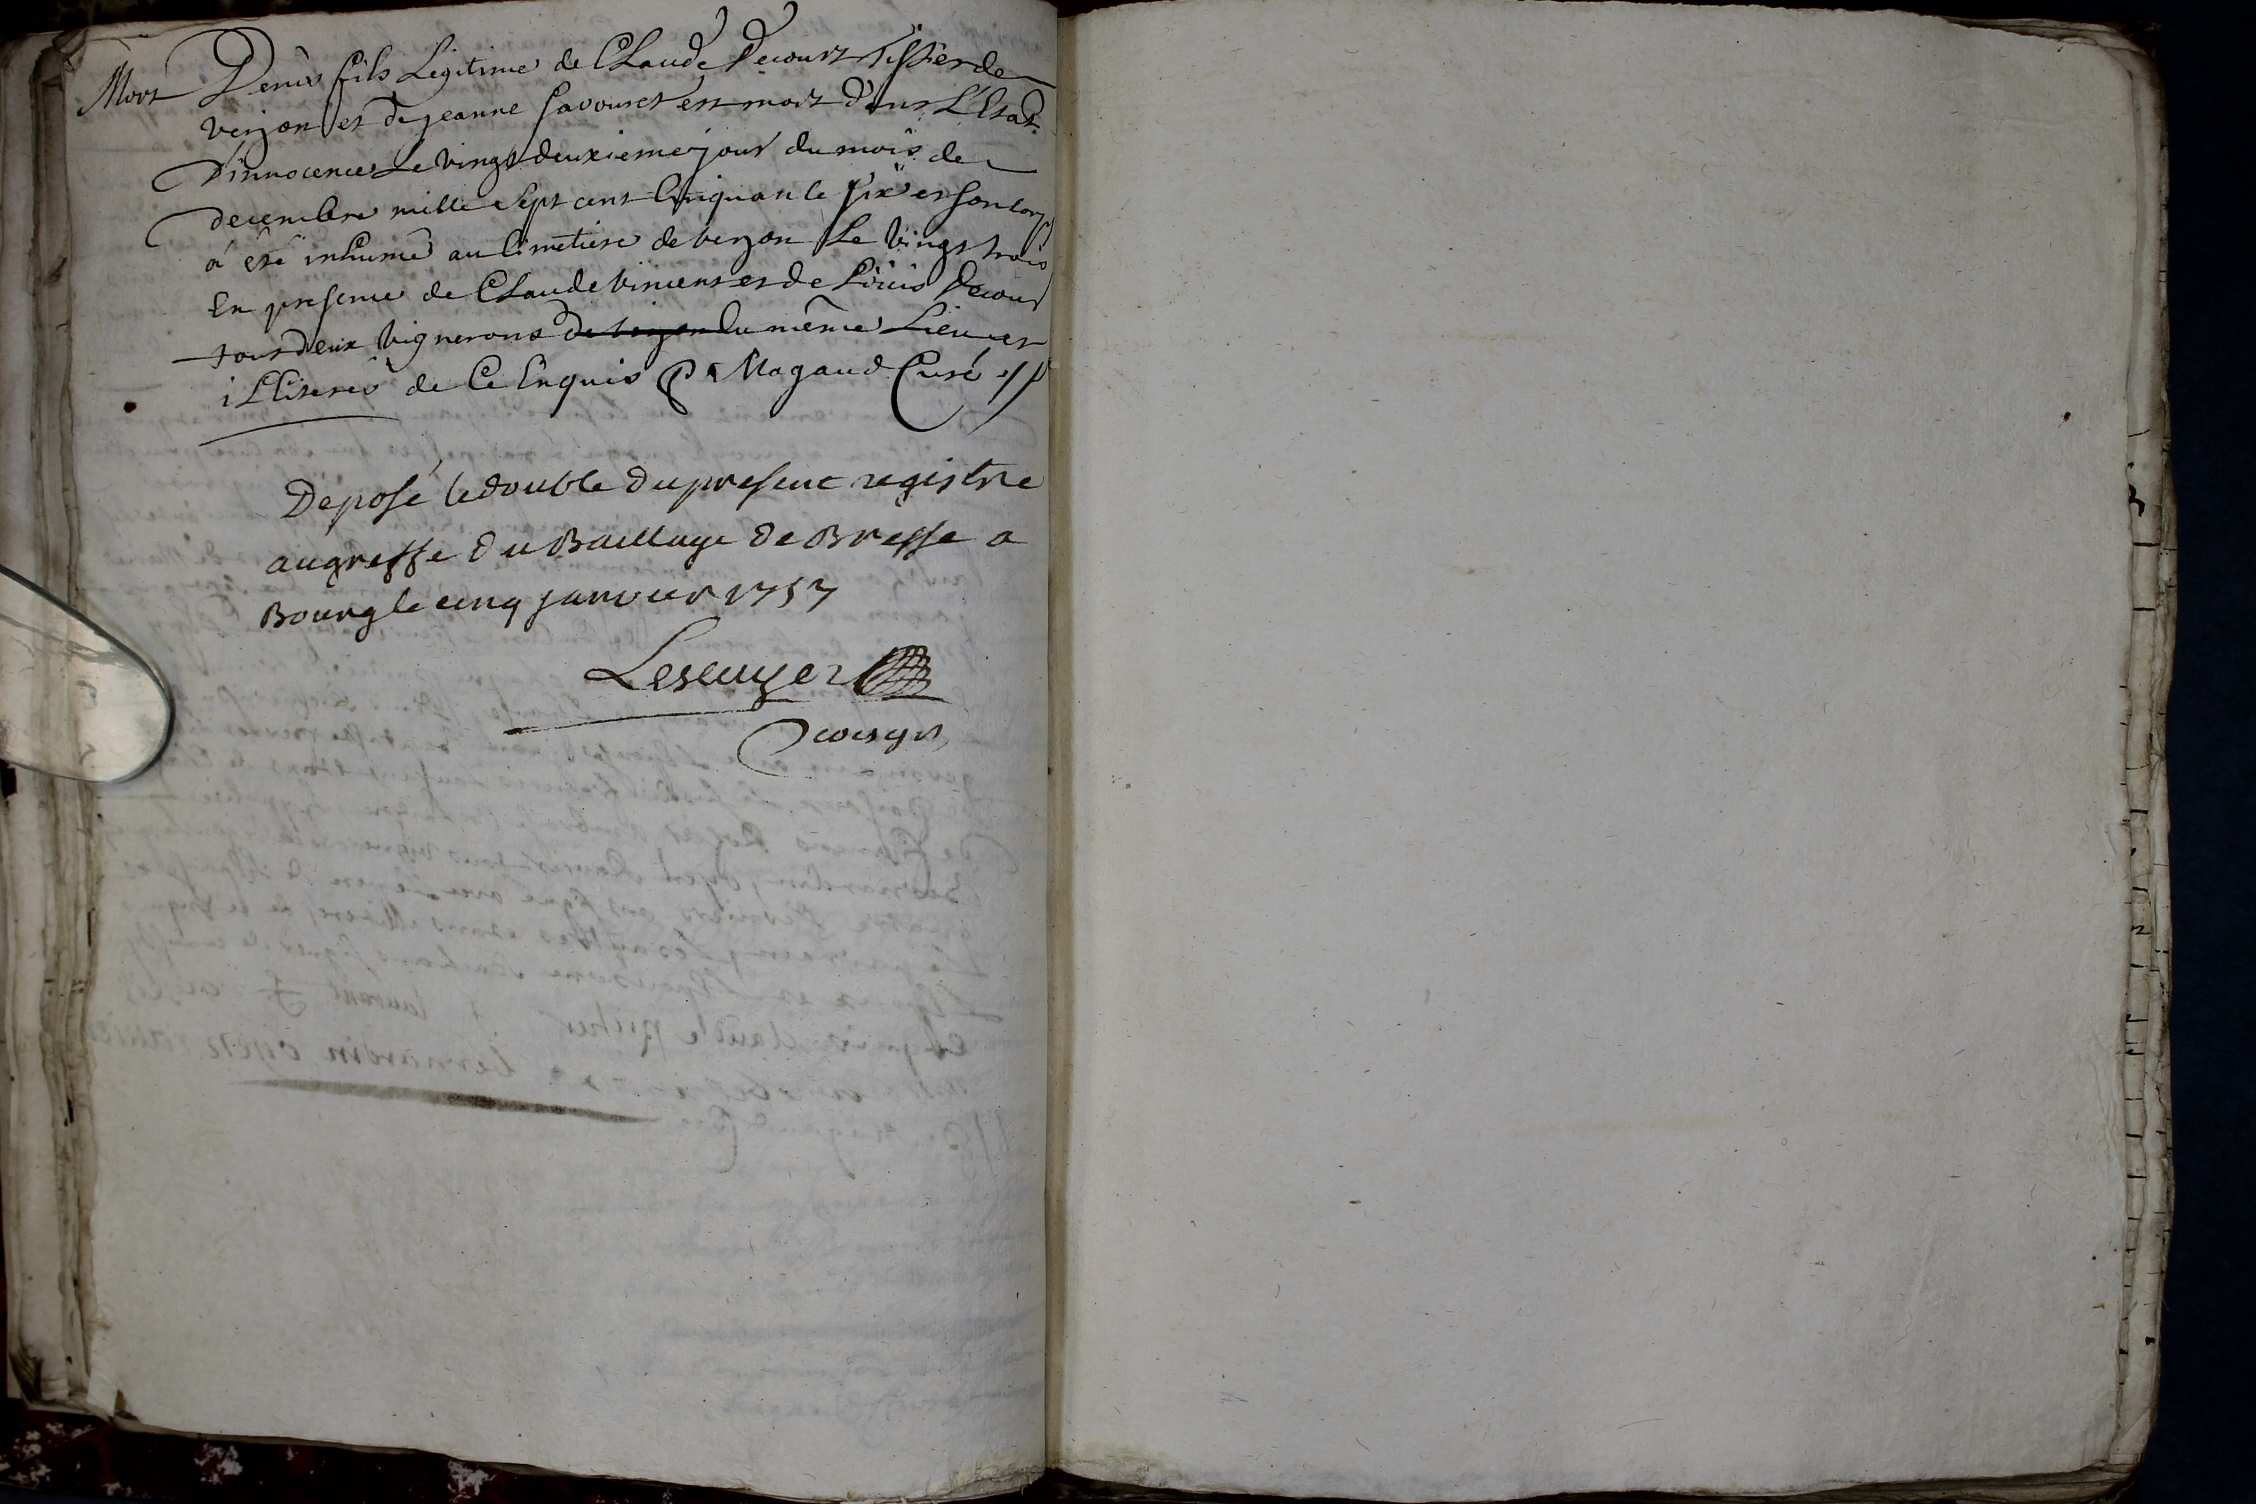 Mort Denis fils Legitime de Claude Decourt tissier de
verjon et de jeanne savouret est mort dans L'Etat
D'innocence Le vingt deuxieme jour du mois de
decembre mille sept cent Cinquante six et son corps
a été inhumé au Cimetiere de verjon Le vingt trois
En presence de Claude vincent et de Louis Decour
tous deux vignerons de verjon du même Lieu et
illiterés de Ce Enquis Magaud Curé
Deposé le double du present registre
au greffe du Bailliage de Bresse a
Bourg le cinq janvier 1757
Lescuyer